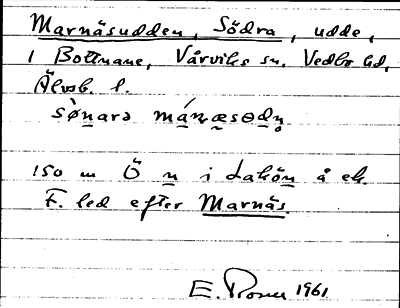 Marnäsudden, Södra, udde,
i Bottnane, Vårviks sn. Vedbo hd,
Älvsb. l.
sø̀narə mánæsɵdn̥
150 m Ö n i Laxön å ek.
F. led efter Marnäs.
E. 1961